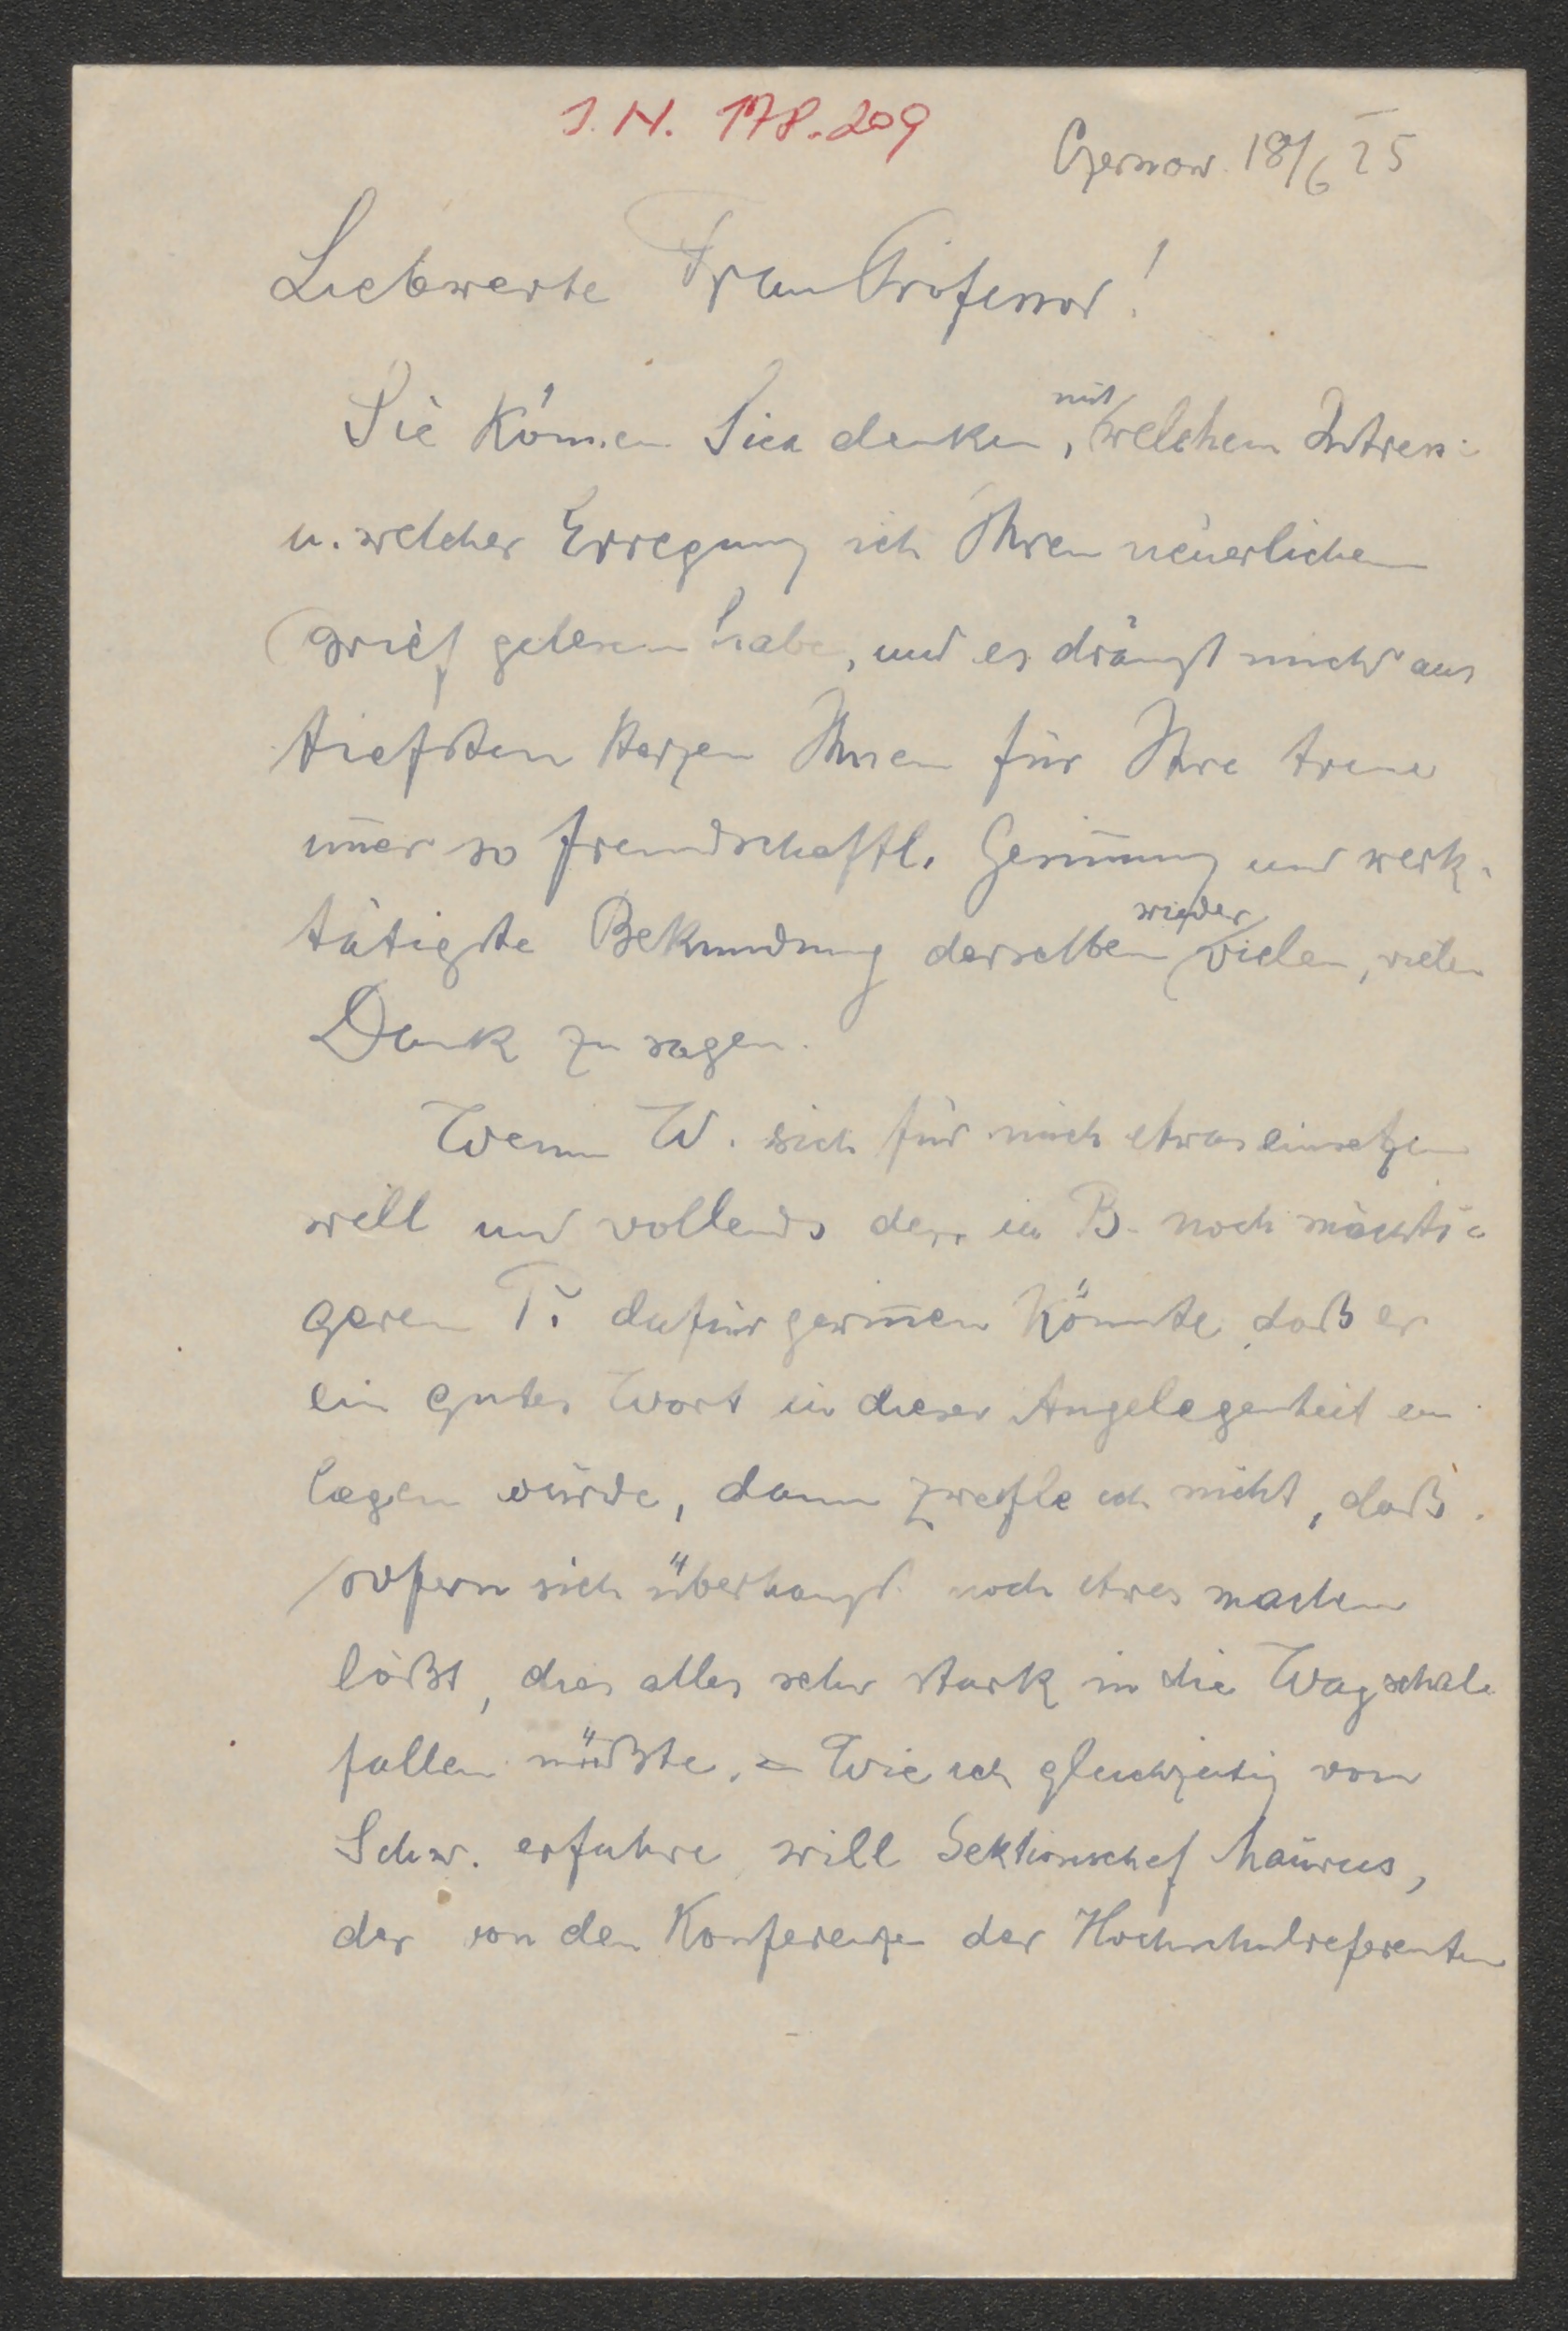 I. N. 178.209
Czernow. 18/6 25
Liebwerte Frau Professor!
Sie können Sich denken, mit welchem Intress
u. welcher Erregung ich Ihren neuerlichen
Brief gelesen habe, und es drängt mich aus
tiefsten Herzen Ihnen für Ihre treue
im̅er so freundschaftl. Gesin̅ung und werk-
tätigste Bekundung derselben wieder vielen, vielen
Dank zu sagen.
Wenn W. sich für mich etwas einsetzen
will und vollends den in B. noch mächti-
geren T. dafür gewin̅en könnte, daß er
ein gutes Wort in dieser Angelegenheit ein
legen würde, dann zweifle ich nicht, daß
sofern sich überhaupt noch etwas machen
läßt, dies alles sehr stark in die Wagschale
fallen müßte. = Wie ich gleichzeitig von
Schw. erfahre will Sektionschef Maurus,
der von den Konferenzen der Hochschulreferenten